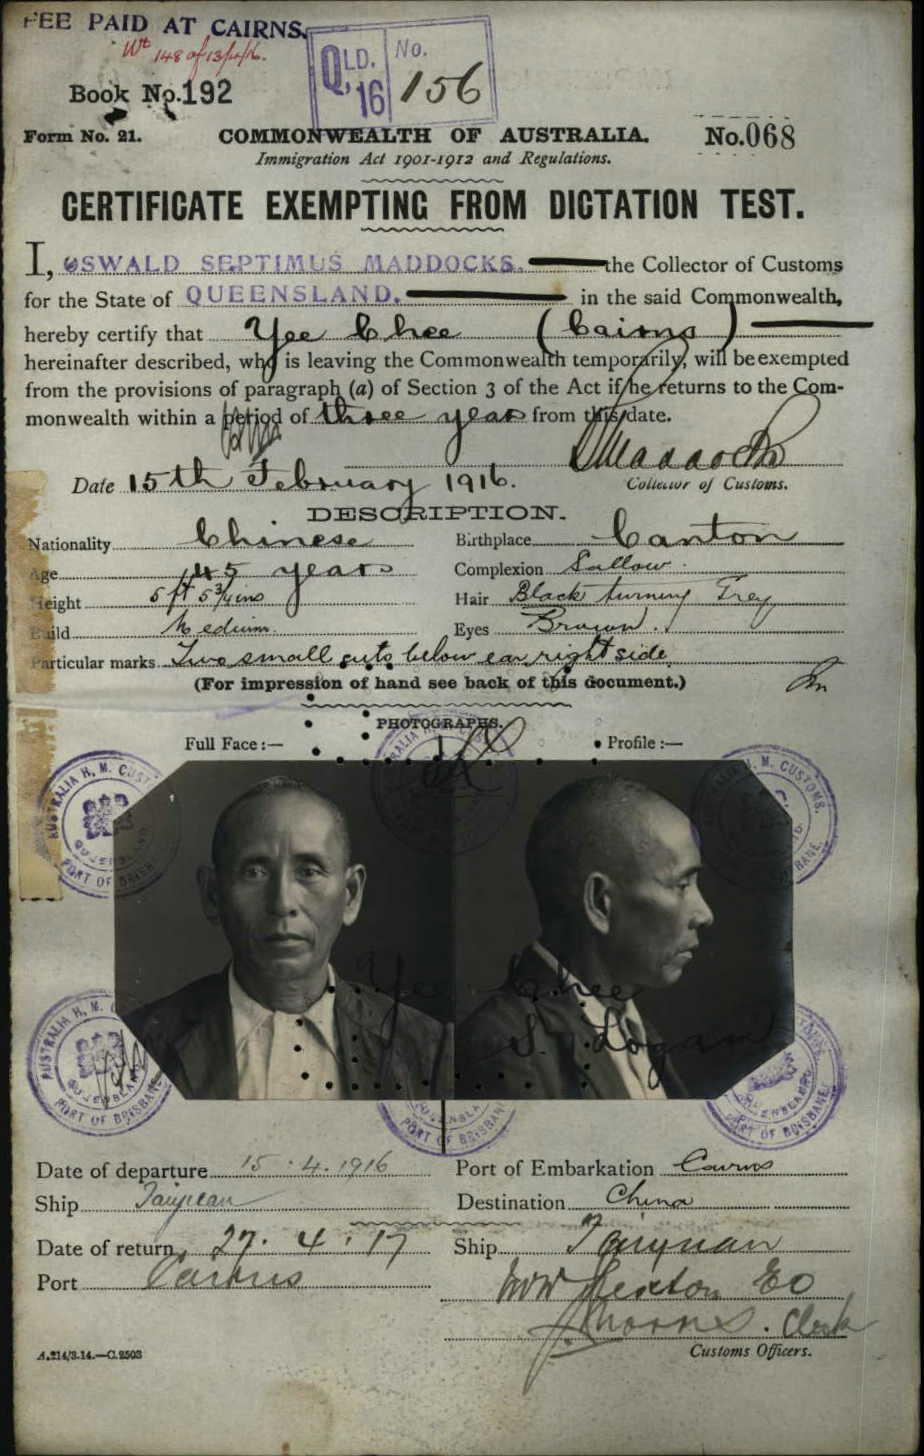 FEE PAID AT CAIRNS.
Wt 148 of 13/4/16.
QLD. 16 No. 156
Book No. 192
Form No. 21. COMMONWEALTH OF AUSTRALIA. No. 068
Immigration Act 1901-1912 and Regulations.
CERTIFICATE EXEMPTING FROM DICTATION TEST.
I, OSWALD SEPTIMUS MADDOCKS. the Collector of Customs
for the State of QUEENSLAND. in the said Commonwealth,
hereby certify that Yee Chee (Cairns)
hereinafter described, who is leaving the Commonwealth temporarily, will be exempted
from the provisions of paragraph (a) of Section 3 of the Act if he returns to the Com-
monwealth within a period of three years from this date.
Maddocks
Date 15th February 1916. Collector of Customs.
DESCRIPTION.
Nationality Chinese Birthplace Canton
Age 45 years Complexion Sallow.
Height 5 ft 5 3/4 ins Hair Black turning Grey
Build Medium. Eyes Brown.
Particular marks Two small cuts below ear right side
(For impression of hand see back of this document.)
PHOTOGRAPHS.
Full Face :— Profile :—
AUSTRALIA H. M. CUSTOMS. QUEENSLAND PORT OF BRISBANE.
Yee Chee
S. Logan
Date of departure 15.4.1916 Port of Embarkation Cairns
Ship Taiyuan Destination China
Date of return 27.4.17 Ship Taiyuan
Port Cairns
Clerk
A.214/3.14.—C.2503 Customs Officers.